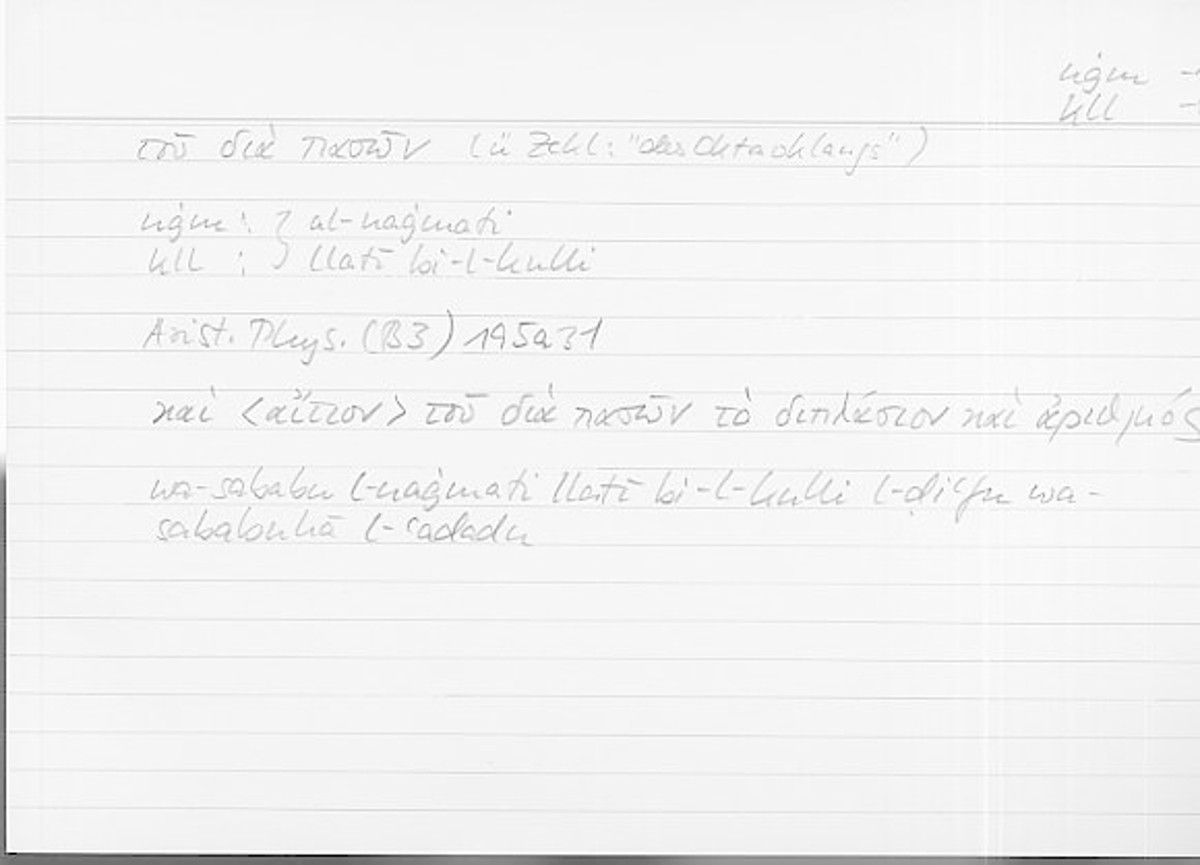 nġm
kll
τοῦ διὰ πασῶν (ü Zekl: "des Oktachklangs")
nġm : } al-naġmati
kll : } llatī bi-l-kulli
Arist. Phys. (B3) 195a31
καὶ <αἴτιον> τοῦ διὰ πασῶν τὸ διπλάσιον καὶ ἀριθμός
wa-sababu l-naġmati llatī bi-l-kulli l-ḍiʿfu wa-
sababuhā l-ʿadadu